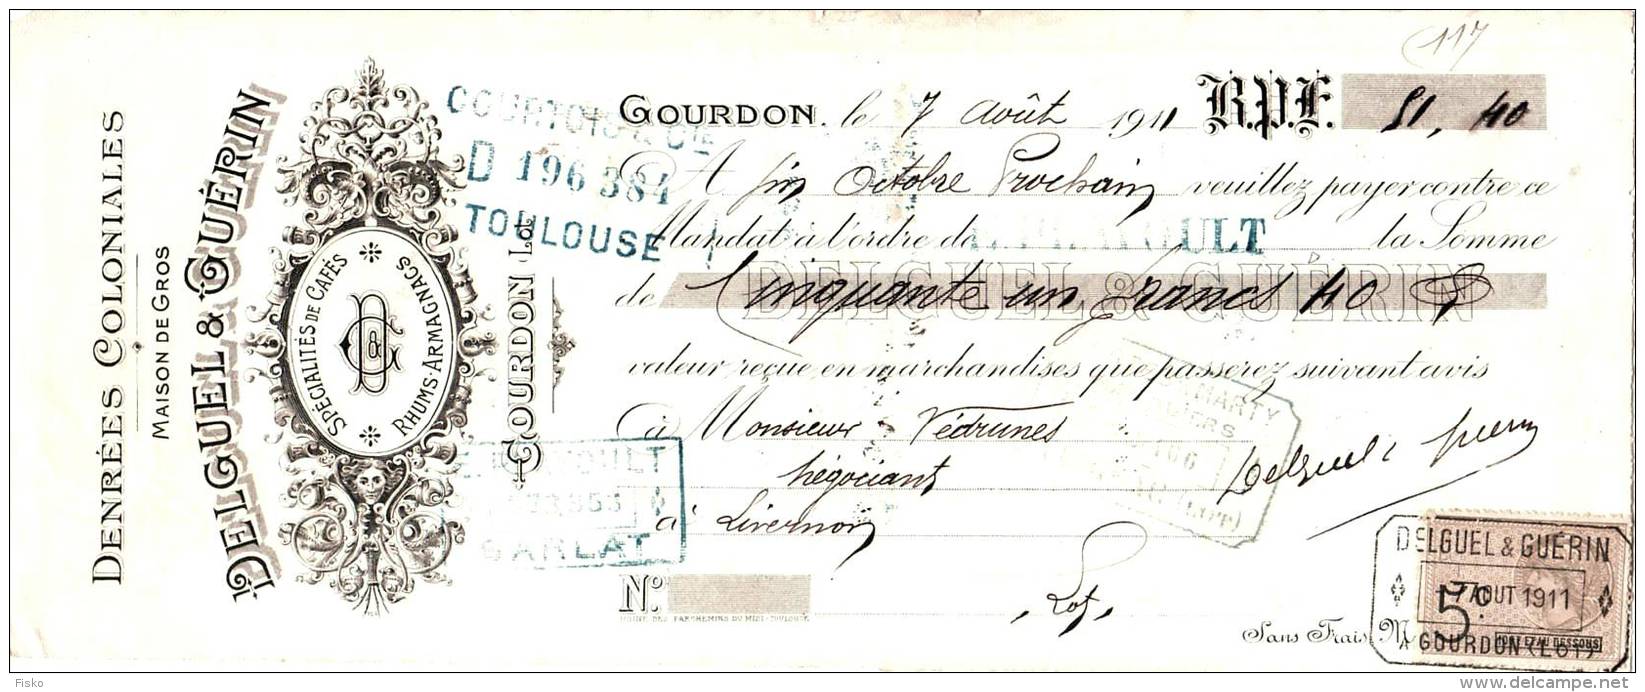 117
DENRÉES COLONIALES
MAISON DE GROS
DELGUEL & GUÉRIN
SPÉCIALITÉS DE CAFÉS
D & G
RHUMS ARMAGNACS
GOURDON LOT
COURTOIS & Cie
D 196384
TOULOUSE
GOURDON, le 7 Août 1911 B.P.F. 51,40
A fin Octobre Prochain veuillez payer contre ce
Mandat à l'ordre de la Somme
DELGUEL & GUÉRIN
de Cinquante un francs 40
valeur reçue en marchandises que passerez suivant avis
à Monsieur Védrunes
négociant
à Livernon
Lot
Delguel & Guérin
MARTY
SARLAT
No.
USINE DES PARCHEMINS DU MIDI-TOULOUSE
Sans Frais
DELGUEL & GUÉRIN
7 AOUT 1911
5c
100f ET AU DESSOUS
GOURDON (LOT)
Fisko
www.delcampe.net